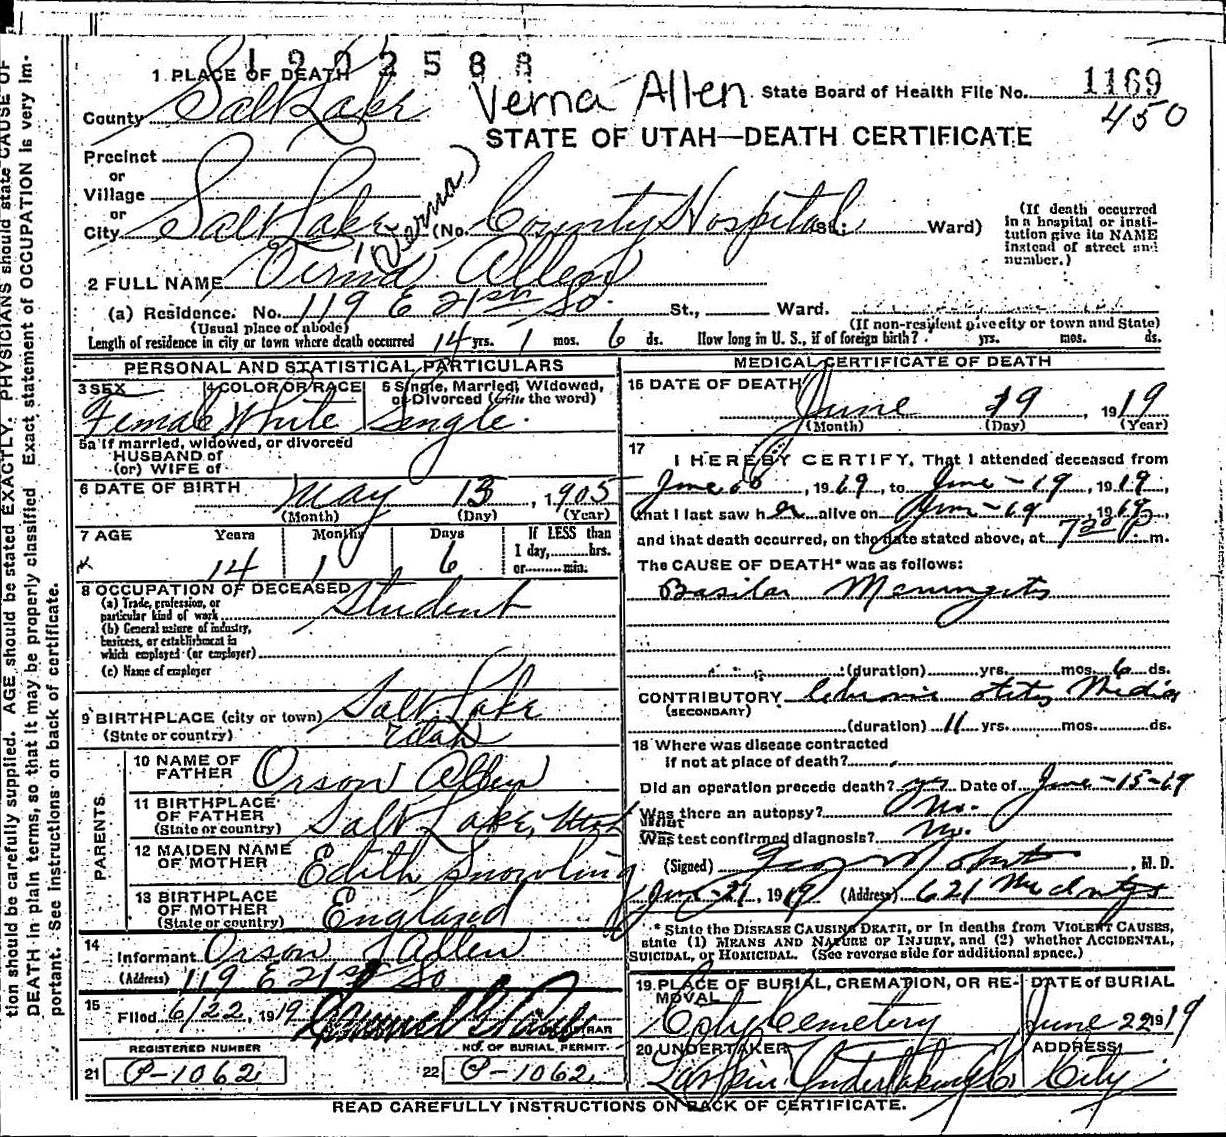 1202588
1 PLACE OF DEATH
Verna Allen State Board of Health File No. 1169
County Salt Lake 450
STATE OF UTAH—DEATH CERTIFICATE
Precinct
or
Village
or
City Salt Lake (No. County Hospital St.; Ward)
(If death occurred in a hospital or insti-
tution give its NAME
instead of street and
number.)
(Verna)
2 FULL NAME Virna Allen
(a) Residence. No. 119 E 21st So. St., Ward.
(Usual place of abode) (If non-resident give city or town and State)
Length of residence in city or town where death occurred 14 yrs. 1 mos. 6 ds. How long in U. S., if of foreign birth? yrs. mos. ds.
PERSONAL AND STATISTICAL PARTICULARS
3 SEX 4 COLOR OR RACE 5 Single, Married, Widowed,
or Divorced (Write the word)
Female White Single
5a If married, widowed, or divorced
HUSBAND of
(or) WIFE of
6 DATE OF BIRTH May 13, 1905
(Month) (Day) (Year)
7 AGE Years Months Days If LESS than
1 day, hrs.
14 1 6 or min.
8 OCCUPATION OF DECEASED
(a) Trade, profession, or
particular kind of work Student
(b) General nature of industry,
business, or establishment in
which employed (or employer)
(c) Name of employer
9 BIRTHPLACE (city or town) Salt Lake
(State or country) Utah
PARENTS
10 NAME OF
FATHER Orson Allen
11 BIRTHPLACE
OF FATHER
(State or country) Salt Lake, Utah
12 MAIDEN NAME
OF MOTHER Edith Snowling
13 BIRTHPLACE
OF MOTHER
(State or country) England
14
Informant Orson J Allen
(Address) 119 E 21st So
15
Filed 6/22, 1919
REGISTRAR
REGISTERED NUMBER NO. OF BURIAL PERMIT.
21 P-1062 22 P-1062
MEDICAL CERTIFICATE OF DEATH
16 DATE OF DEATH
June 19, 1919
(Month) (Day) (Year)
17
I HEREBY CERTIFY, That I attended deceased from
June, 1919, to June-19, 1919,
that I last saw her alive on June-19, 19
and that death occurred, on the date stated above, at 7 30 P. m.
The CAUSE OF DEATH* was as follows:
Basilar Meningitis
(duration) yrs. mos. 6 ds.
CONTRIBUTORY Chronic otitis Media
(SECONDARY)
(duration) 11 yrs. mos. ds.
18 Where was disease contracted
if not at place of death?
Did an operation precede death? yes Date of June-15-19
Was there an autopsy? No.
What
Was test confirmed diagnosis? No.
(Signed) Geo, M. D.
June-21, 1919 (Address) 621 McIntyre
* State the DISEASE CAUSING DEATH, or in deaths from VIOLENT CAUSES,
state (1) MEANS AND NATURE OF INJURY, and (2) whether ACCIDENTAL,
SUICIDAL, or HOMICIDAL. (See reverse side for additional space.)
19 PLACE OF BURIAL, CREMATION, OR RE-
MOVAL DATE of BURIAL
City Cemetery June 22 1919
20 UNDERTAKER ADDRESS
Larkin Undertaking Co City
READ CAREFULLY INSTRUCTIONS ON BACK OF CERTIFICATE.
tion should be carefully supplied. AGE should be stated EXACTLY. PHYSICIANS should state CAUSE OF
DEATH in plain terms, so that it may be properly classified. Exact statement of OCCUPATION is very im-
portant. See instructions on back of certificate.